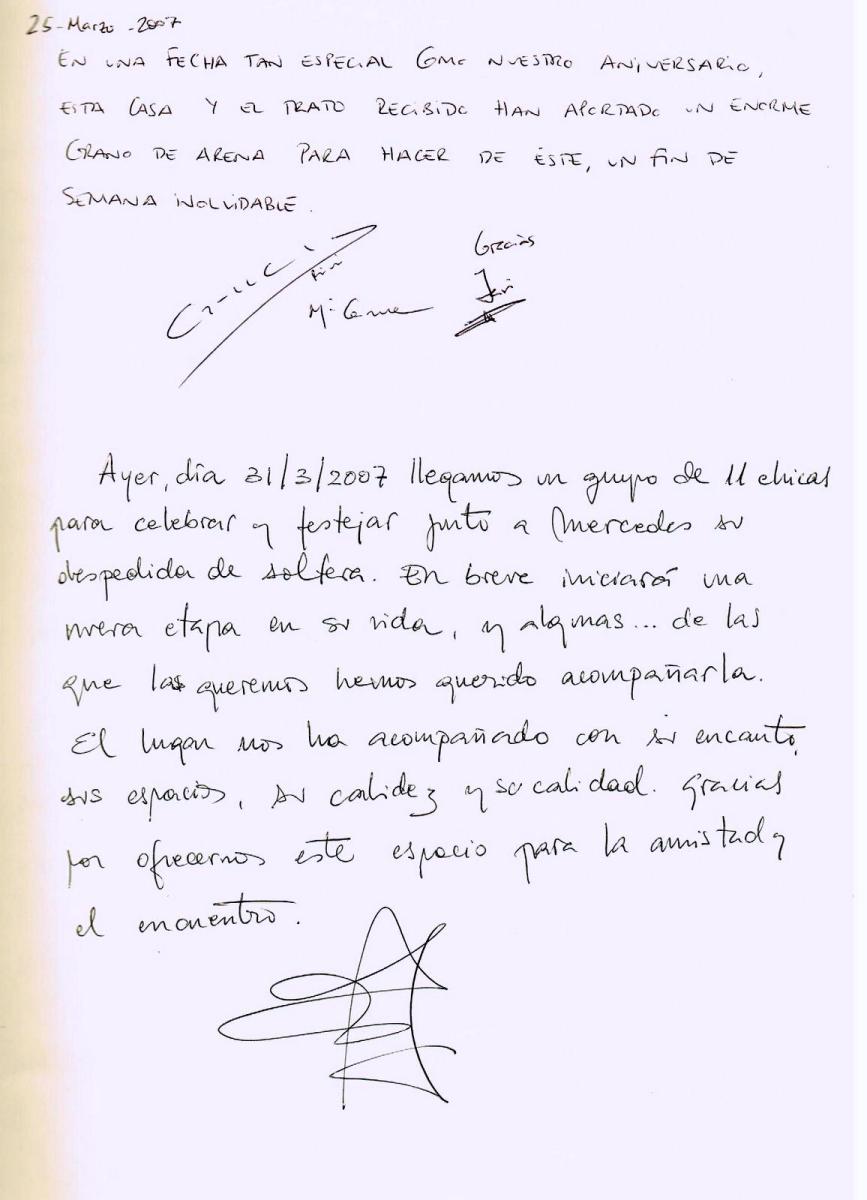 25-Marzo-2007
EN UNA FECHA TAN ESPECIAL COMO NUESTRO ANIVERSARIO,
ESTA CASA Y EL TRATO RECIBIDO HAN APORTADO UN ENORME
GRANO DE ARENA PARA HACER DE ÉSTE, UN FIN DE
SEMANA INOLVIDABLE.
Gracias
Mª Carmen
Javi
Ayer, día 31/3/2007 llegamos un grupo de 11 chicas
para celebrar y festejar junto a Mercedes su
despedida de soltera. En breve iniciará una
nueva etapa en su vida, y algunas... de las
que las queremos hemos querido acompañarla.
El lugar nos ha acompañado con su encanto,
sus espacios, su calidez y su calidad. Gracias
por ofrecernos este espacio para la amistad y
el encuentro.